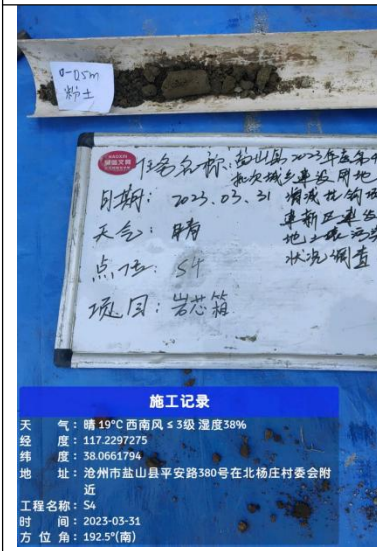 0-0.5m
粉土
任务名称：盐山县2023年度第4
批次城乡建设用地
日期：2023.03.31 增减挂钩项
建新区建设
天气：晴 地土壤污染
点位：S4 状况调查
项目：岩芯箱
施工记录
天 气：晴 19℃ 西南风 ≤ 3级 湿度38%
经 度：117.2297275
纬 度：38.0661794
地 址：沧州市盐山县平安路380号在北杨庄村委会附
近
工程名称：S4
时 间：2023-03-31
方 位 角：192.5°(南)